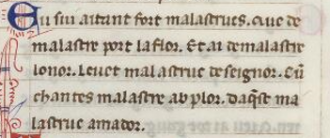 Eu sui aitant fort malastrucs. que de
malastre port la flor. Et ai de malastre
lonor. Leuet mal astruc de seignor. Eũ
chantes malastre ab plor. daqᷤt ma
lastruc amador.